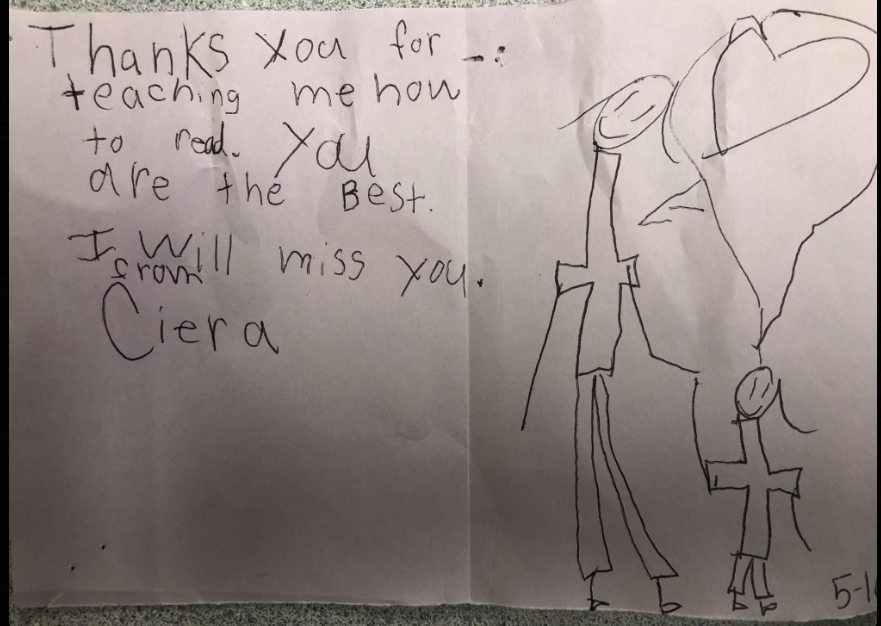 Thanks you for -:
teaching me how
to read. You
are the Best.
I will miss you.
from
Ciera
5-1